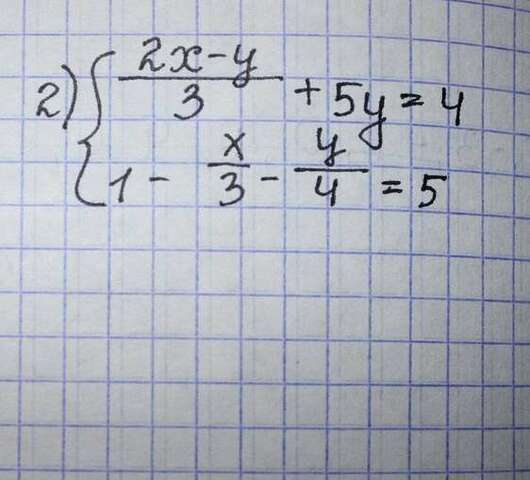 2) { (2x-y)/3 + 5y = 4
1 - x/3 - y/4 = 5